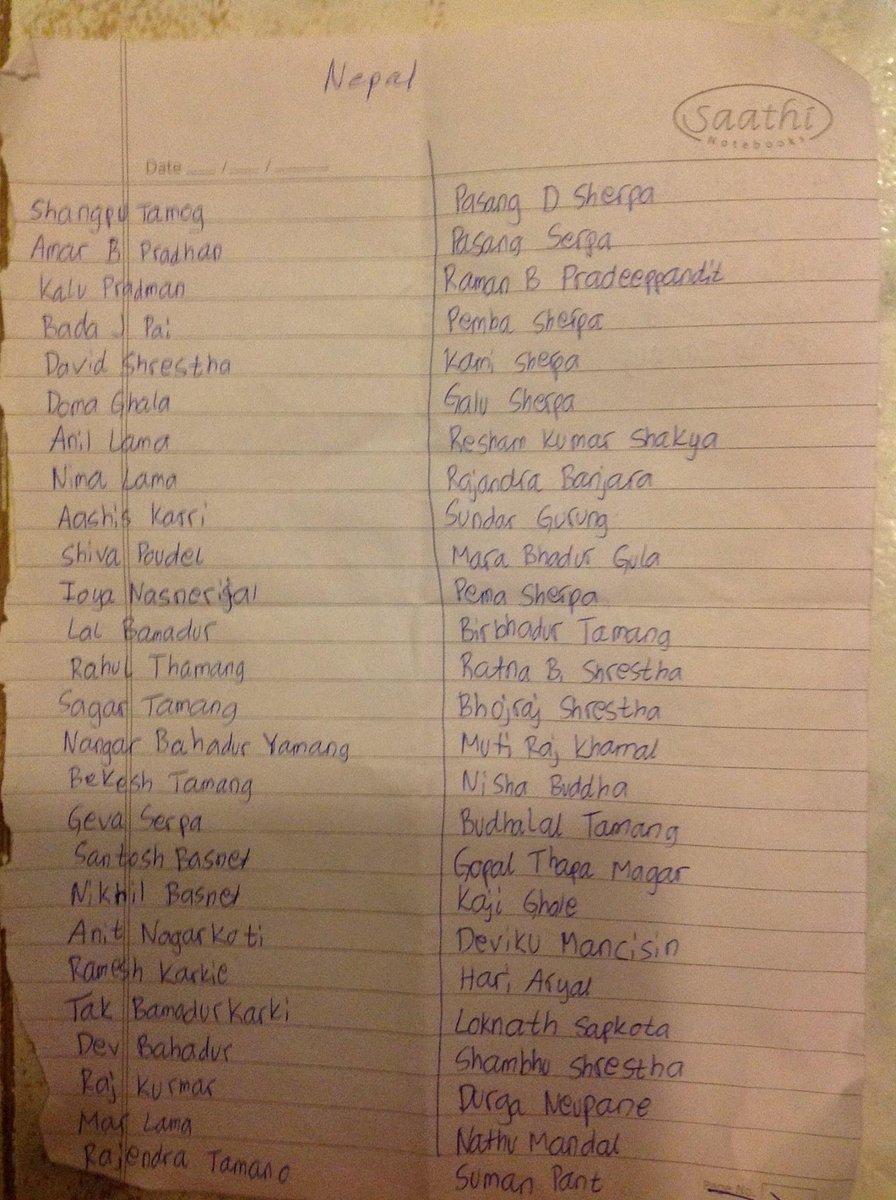 Nepal
Saathi
Notebooks
Date __ / __ / ____
Shangpu Tamog
Amar B Pradhan
Kalu Pradman
Bada J Pai
David Shrestha
Doma Ghala
Anil Lama
Nima Lama
Aashis Karri
Shiva Poudel
Ioya Nasnerijal
Lal Bamadur
Rahul Thamang
Sagar Tamang
Nangar Bahadur Yamang
Bekesh Tamang
Geva Serpa
Santosh Basnet
Nikhil Basnet
Anit Nagarkoti
Ramesh Karkie
Tak Bamadur Karki
Dev Bahadur
Raj Kurmar
Mar Lama
Rajendra Tamano
Pasang D Sherpa
Pasang Serpa
Raman B Pradeeppandit
Pemba Sherpa
Kami Sherpa
Galu Sherpa
Resham Kumar Shakya
Rajandra Banjara
Sundar Gurung
Mara Bhadur Gula
Pema Sherpa
Birbhadur Tamang
Ratna B. Shrestha
Bhojraj Shrestha
Muti Raj Khamal
Nisha Buddha
Budhalal Tamang
Gopal Thapa Magar
Kaji Ghale
Deviku Mancisin
Hari Aryal
Loknath Sapkota
Shambhu Shrestha
Durga Neupane
Nathu Mandal
Suman Pant
Page No.